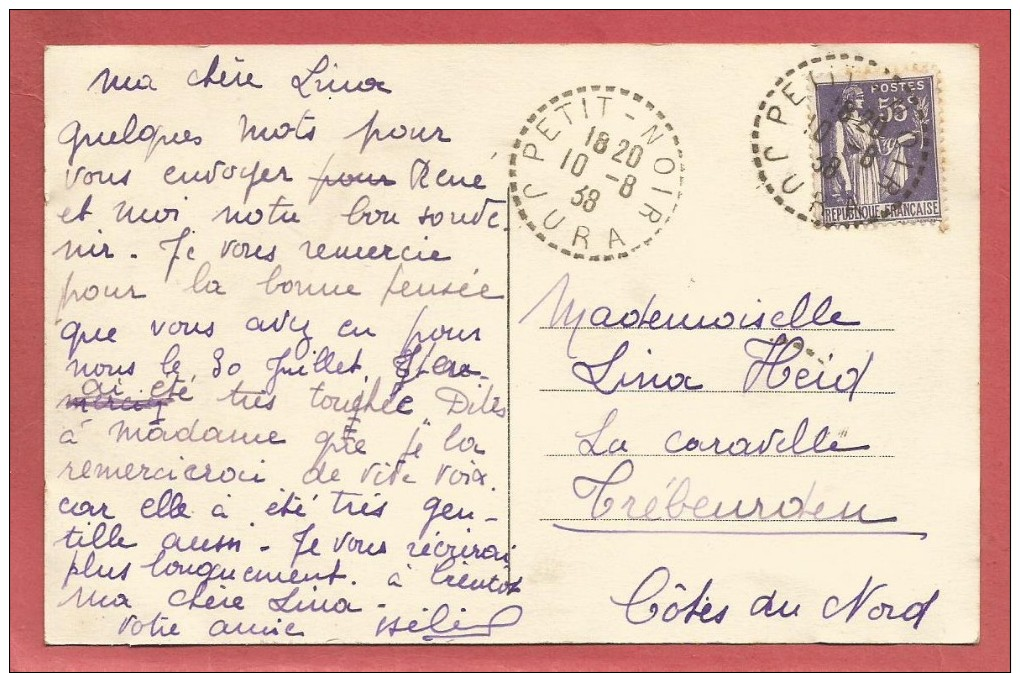 ma chère Lina
quelques mots pour
vous envoyer pour René
et moi notre bon souve
nir. Je vous remercie
pour la bonne pensée
que vous avez eu pour
nous le 30 Juillet. J'
ai été très touchée. Dites
à madame que je la
remercierai de vive voix.
car elle à été très gen-
tille aussi. Je vous récrirai
plus longuement. à bientôt
ma chère Lina.
votre amie
PETIT-NOIR
18 20
10 -8
38
JURA
PETIT-NOIR
18 20
10 -8
38
JURA
POSTES
55
RÉPUBLIQUE FRANÇAISE
Mademoiselle
Lina Heid
La caravelle
Trébeurden
Côtes du Nord